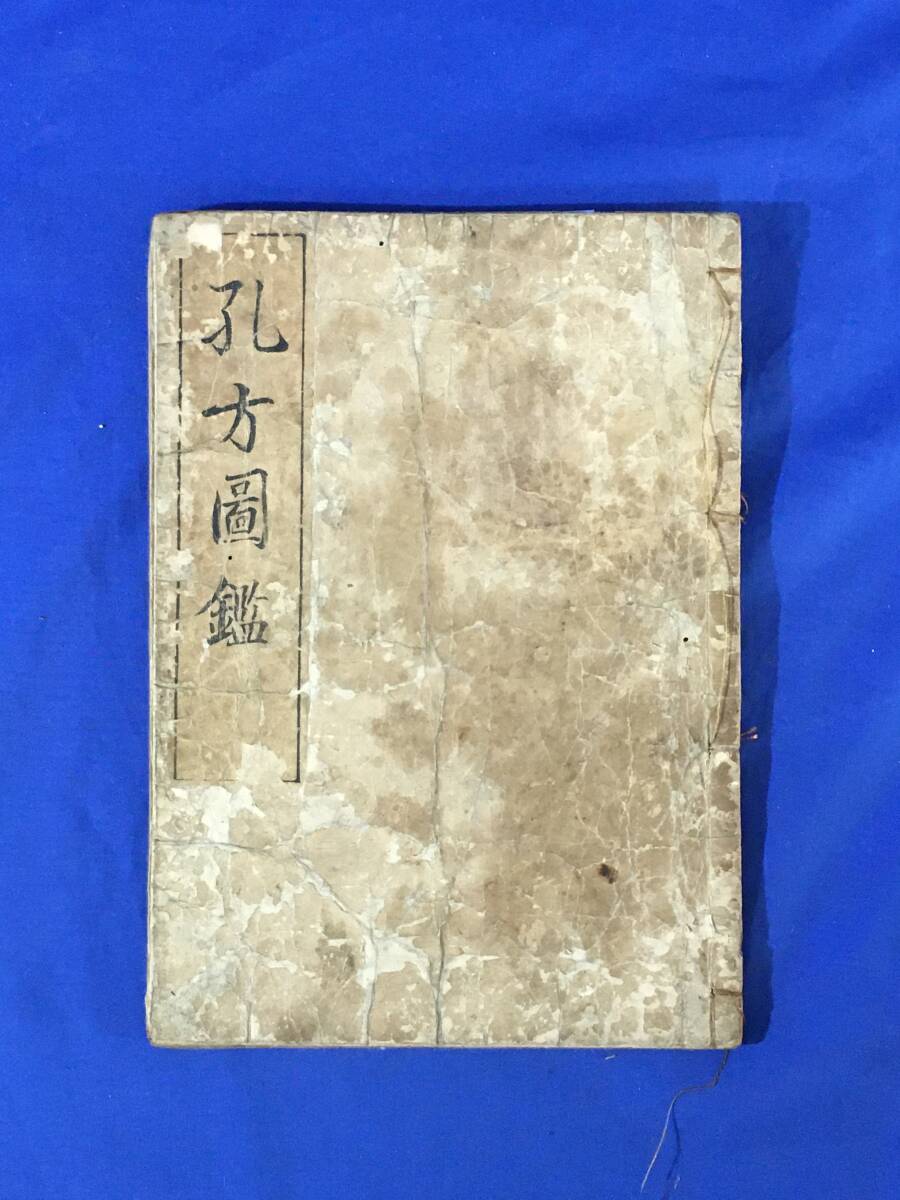 孔方圖鑑